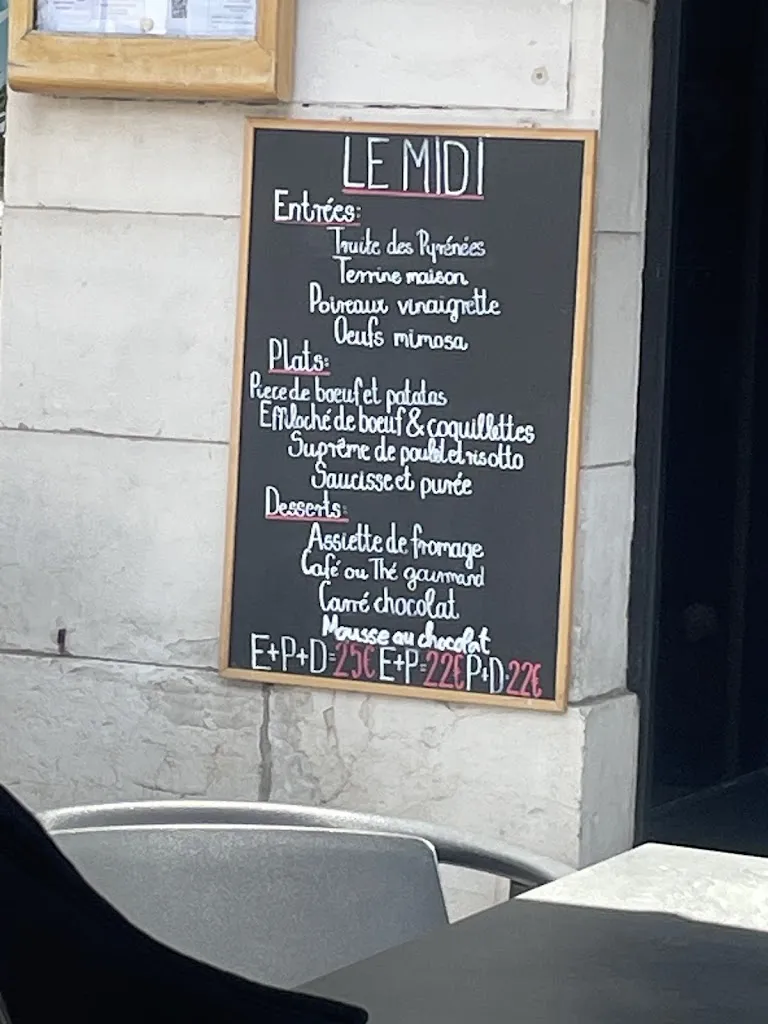 LE MIDI
Entrées:
Truite des Pyrénées
Terrine maison
Poireaux vinaigrette
Oeufs mimosa
Plats:
Piece de boeuf et patatas
Effiloché de boeuf & coquillettes
Suprême de poulet et risotto
Saucisse et purée
Desserts:
Assiette de fromage
Café ou Thé gourmand
Carré chocolat
Mousse au chocolat
E+P+D=25€ E+P=22€ P+D=22€